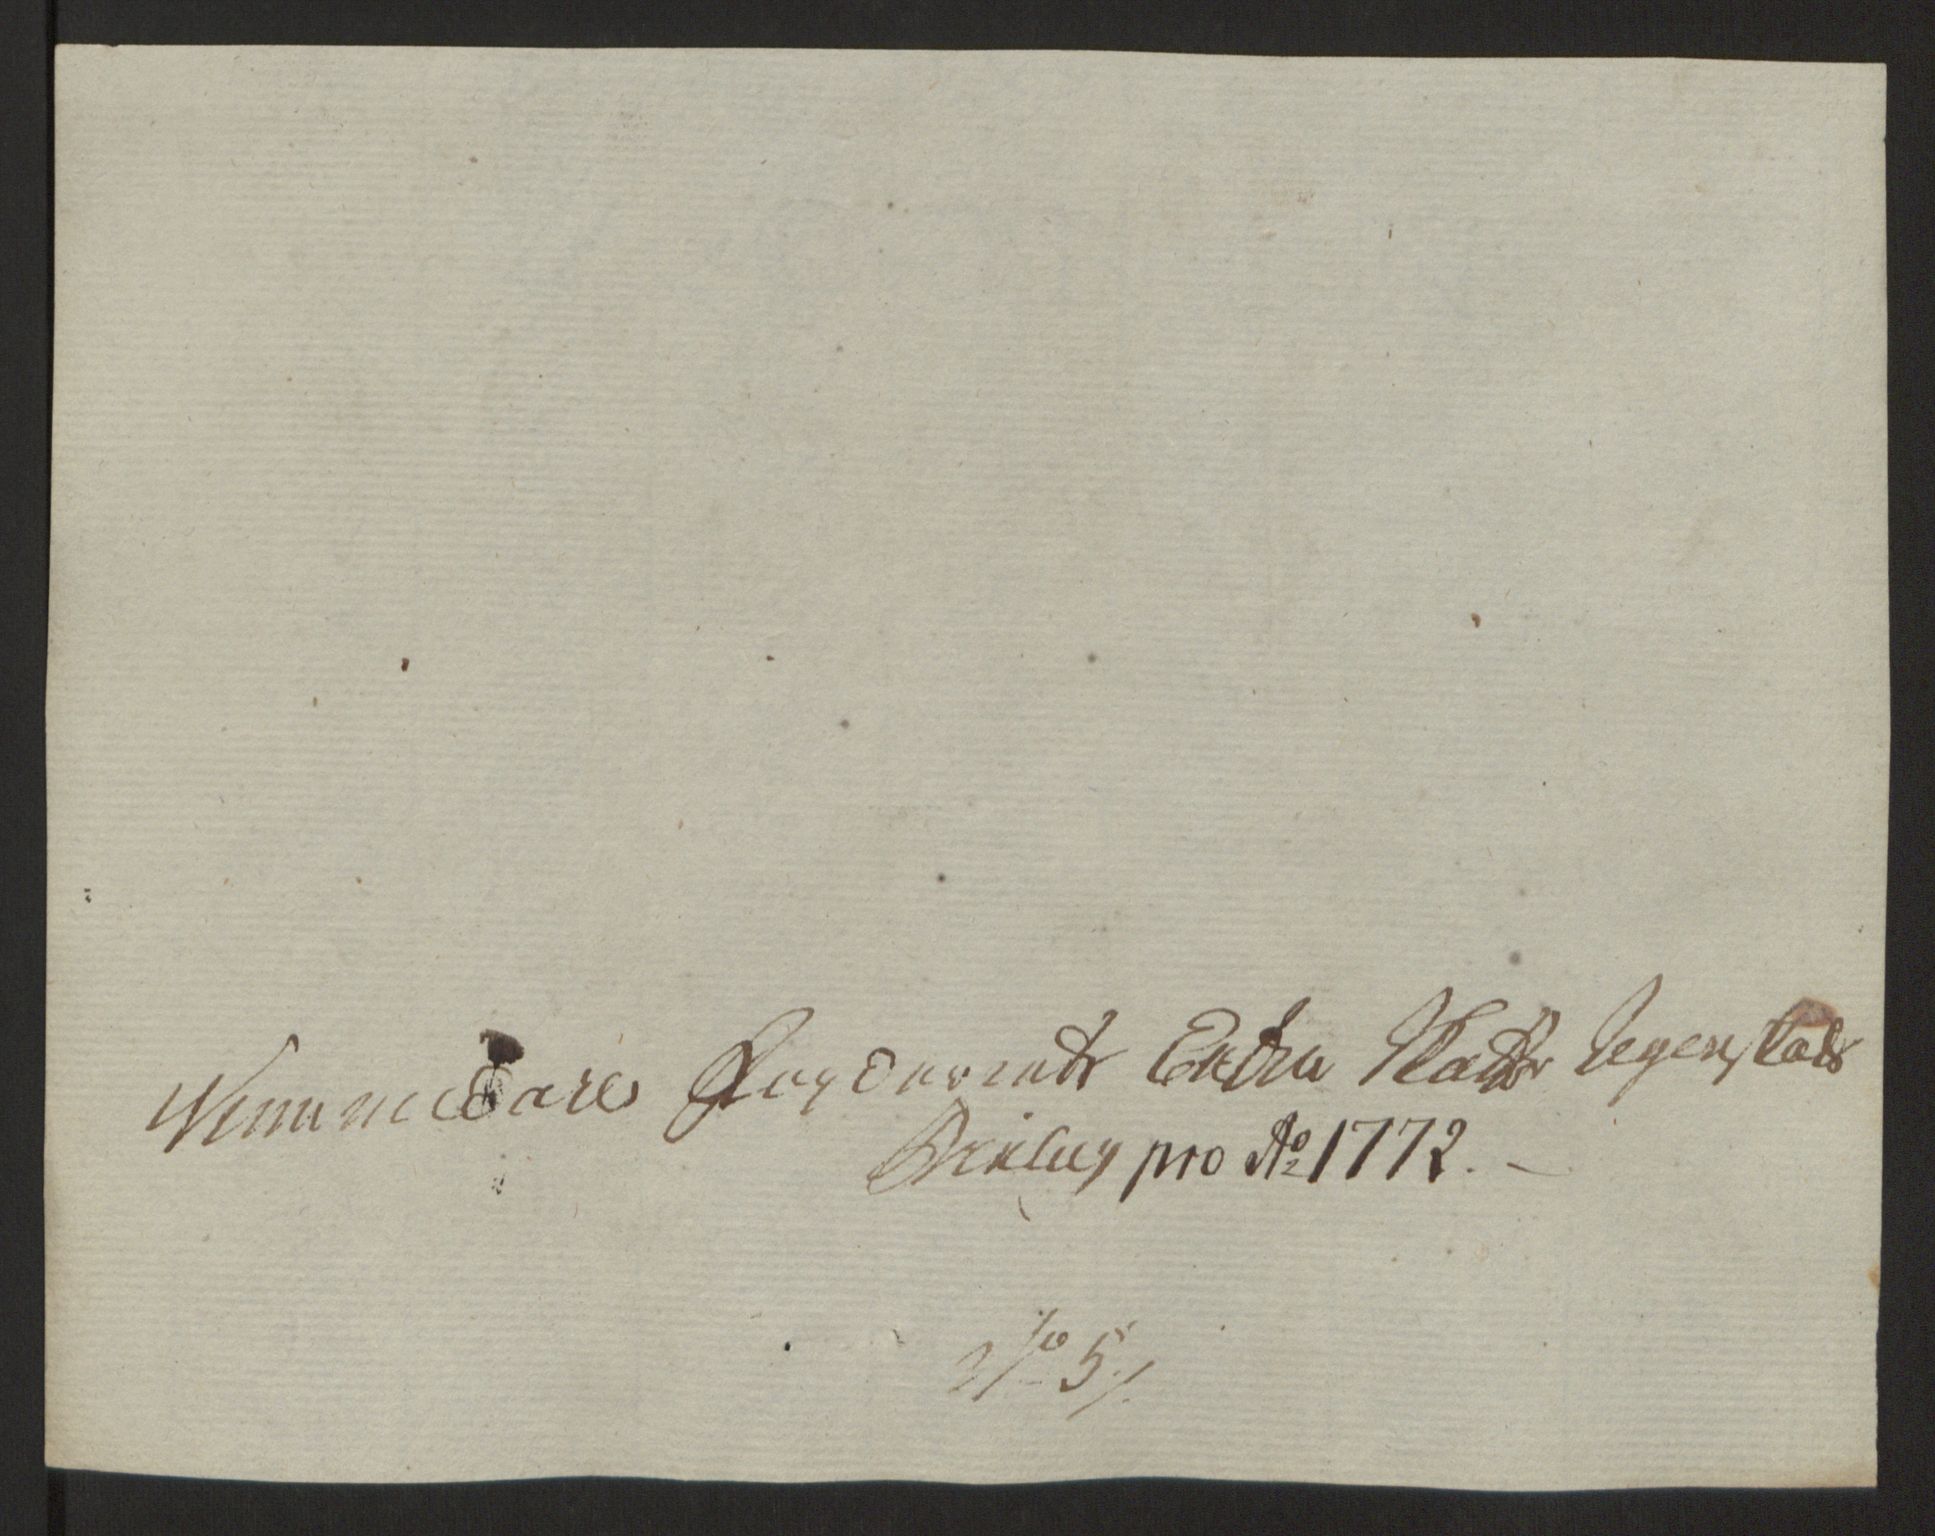 Nummedals Fogderies Extra Skatts Regenskabs
Bielag pro Ao 1772. –
No 5 /.